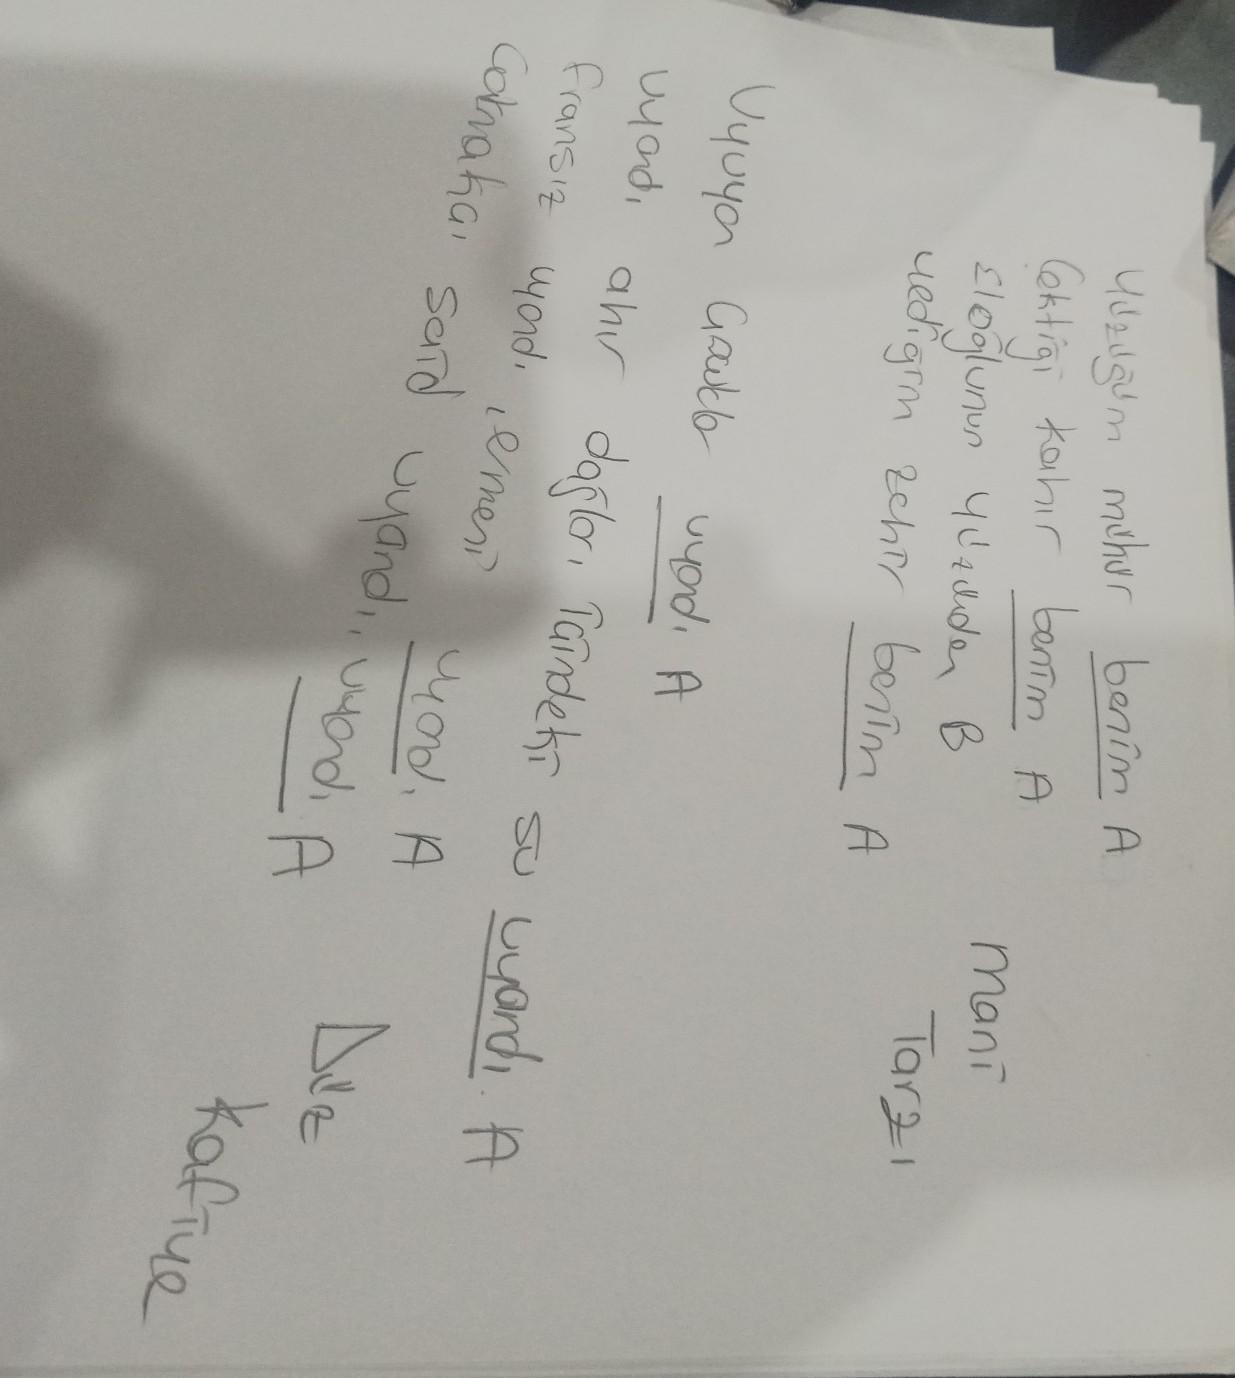 Yüzüğüm mühür benim A
Çektiği kahır benim A
Eloğlunun yüzünden B
Yediğim zehir benim A
Mani
Tarzı
Uyuyan uyandı A
Uyandı ahır dağları, Taindeki su uyandı. A
Fransız uyandı, ermeni uyandı, A
Çakmakçı Said uyandı, uyandı, A
Düz
Kafiye